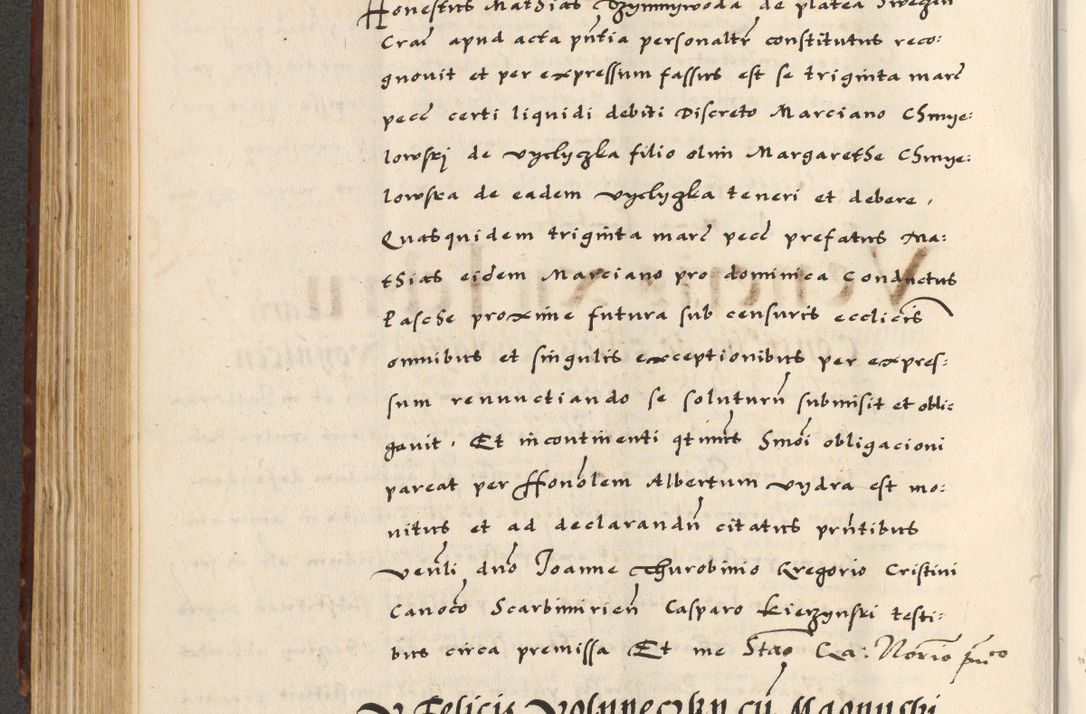 Honestus Mathias Rzymnywoda de platea Swecen
Craī apud acta pn̄tia personaltr̄ constitutus reco:
gnouit et per expressum fassus est se triginta marc̄
pecc̄ certi liquidi debiti Discreto Marciano Chmye:
lowskj de vyclyczka filio olim Margarethe Chmye:
lowska de eadem vyclyczka teneri et debere,
Quasquidem triginta marc̄ pecc̄ prefatus Ma:
thias eidem Marciano pro dominica Conductus
Pasche proxime futura sub censuris ecclicis
omnibus et singulis exceptionibus per expres:
sum renunctiando se soluturū submisit et obli:
gauit. Et incontinenti qtinus Smōi obligacioni
pareat per Honōlem Albertum vydra est mo:
nitus et ad declarandū citatus prn̄tibus
Venlī dnō Joanne Churobinio Gregorio Cristini
Canoco Scarbimirien̄ Casparo kierzynski testi:
bus circa premissa Et me Stāo Notario
Felicis Volyneczky cū Magnuski